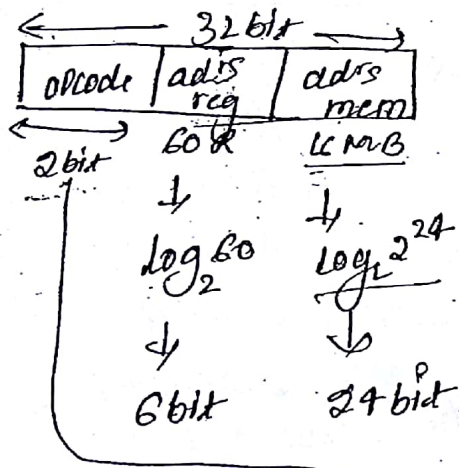 32 bit
opcode adrs reg adrs mem
2 bit 60 R 16 MB
↓ ↓
log₂60 log₂2²⁴
↓ ↓
6 bit 24 bit